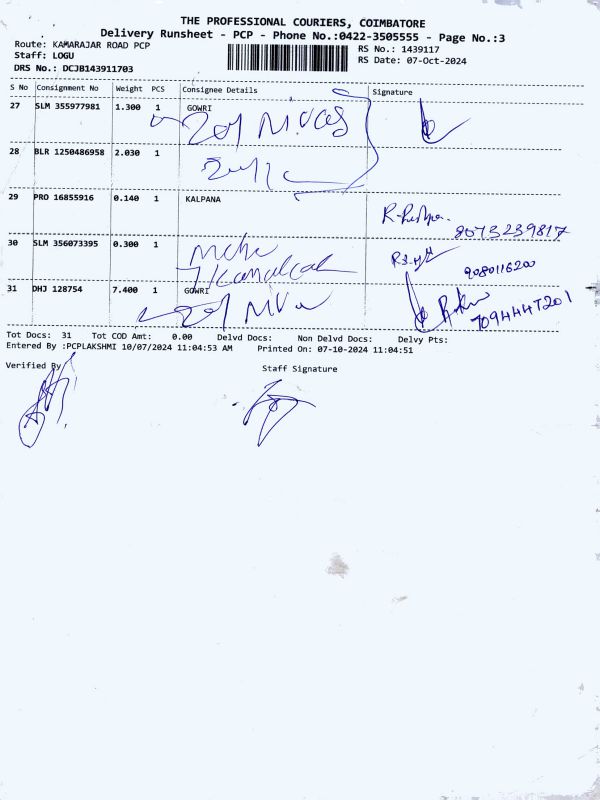 THE PROFESSIONAL COURIERS, COIMBATORE
Delivery Runsheet - PCP - Phone No.:0422-3505555 - Page No.:3
Route: KAMARAJAR ROAD PCP
RS No.: 1439117
Staff: LOGU
RS Date: 07-Oct-2024
DRS No.: DCJB143911703
S No Consignment No Weight PCS Consignee Details Signature
27 SLM 355977981 1.300 1 GOWRI
28 BLR 1250486958 2.030 1
29 PRO 16855916 0.140 1 KALPANA
8073239817
30 SLM 356073395 0.300 1
9080116200
31 DHJ 128754 7.400 1 GOWRI
7094447201
Tot Docs: 31 Tot COD Amt: 0.00 Delvd Docs: Non Delvd Docs: Delvy Pts:
Entered By :PCPLAKSHMI 10/07/2024 11:04:53 AM Printed On: 07-10-2024 11:04:51
Verified By Staff Signature